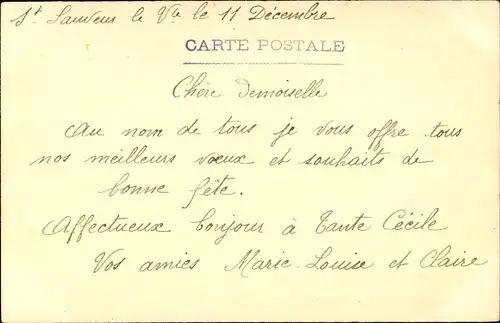 St Sauveur le Vte le 11 Décembre
CARTE POSTALE
Chère Demoiselle
Au nom de tous je vous offre tous
nos meilleurs voeux et souhaits de
bonne fête.
Affectueux bonjour à Tante Cécile
Vos amies Marie-Louise et Claire